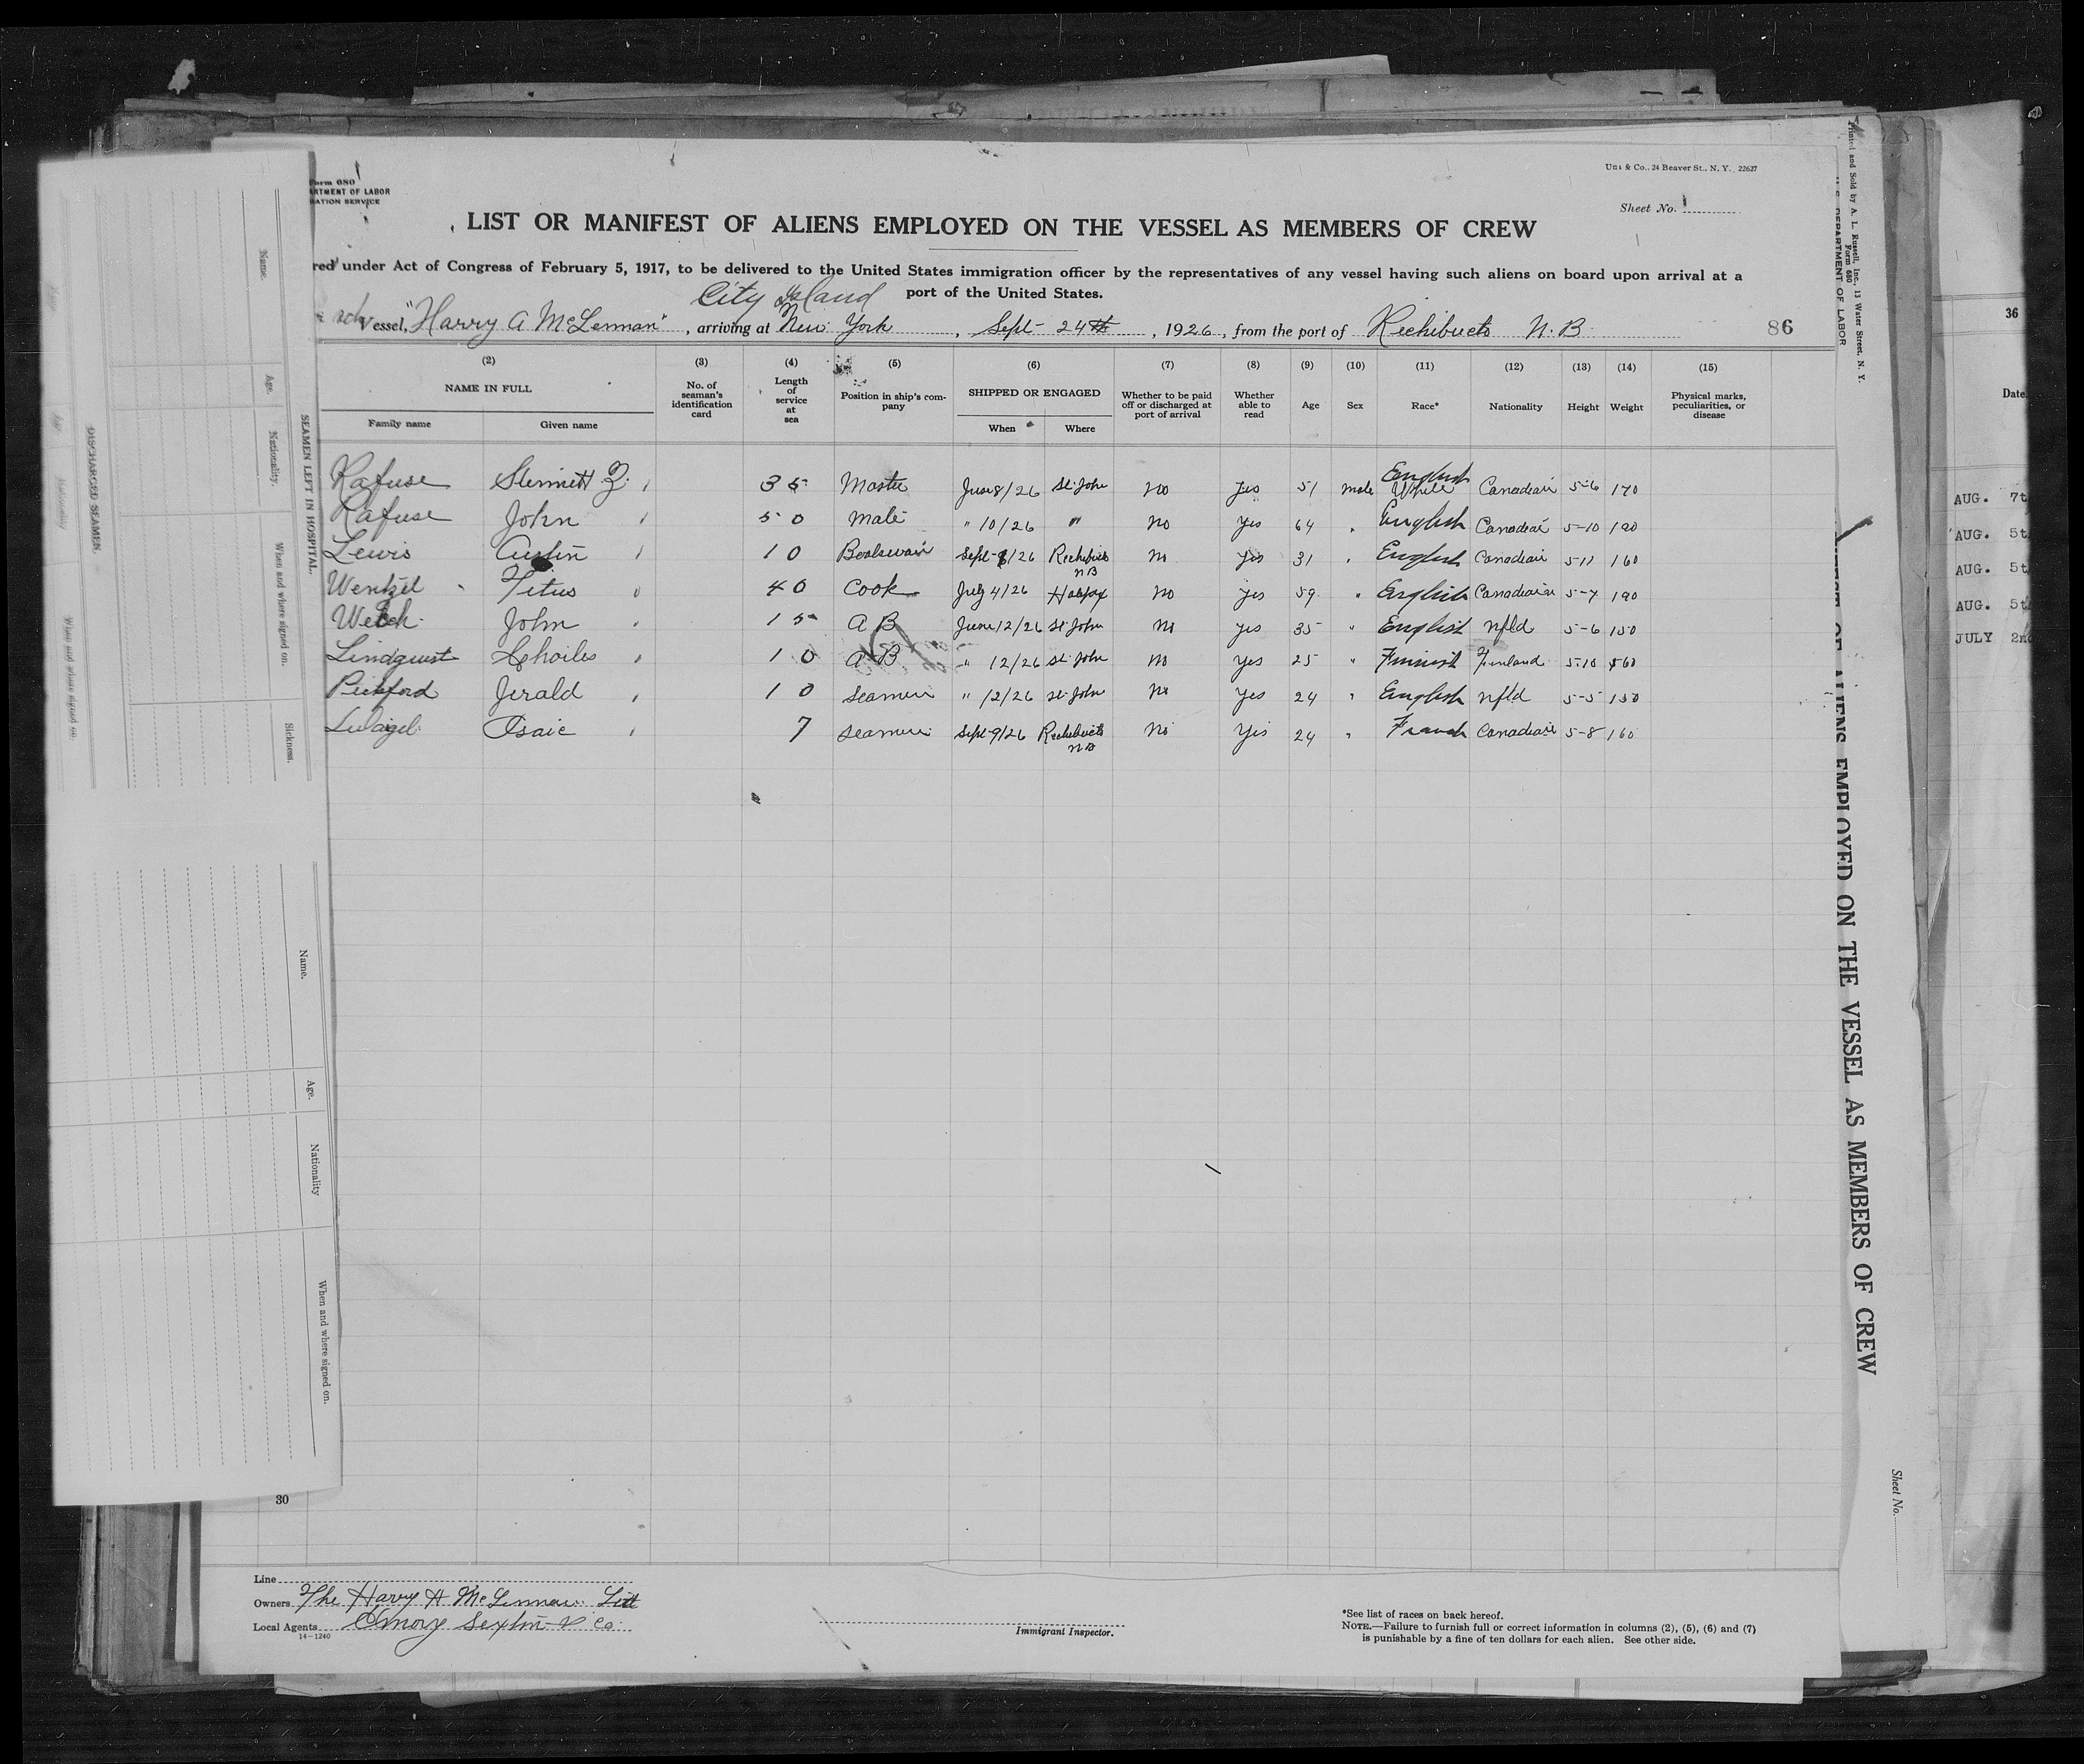 Form 680
RTMENT OF LABOR
RATION SERVICE
& Co., 24 Beaver St., N. Y. 22627
Sheet No. 1
LIST OR MANIFEST OF ALIENS EMPLOYED ON THE VESSEL AS MEMBERS OF CREW
red under Act of Congress of February 5, 1917, to be delivered to the United States immigration officer by the representatives of any vessel having such aliens on board upon arrival at a
City Island port of the United States.
sch Vessel, "Harry A McLennan", arriving at New York, Sept 24th, 1926, from the port of Richibucto N.B. 86
(2) (3) (4) (5) (6) (7) (8) (9) (10) (11) (12) (13) (14) (15)
NAME IN FULL No. of seaman's identification card Length of service at sea Position in ship's company SHIPPED OR ENGAGED Whether to be paid off or discharged at port of arrival Whether able to read Age Sex Race* Nationality Height Weight Physical marks, peculiarities, or disease
Family name Given name When Where
Rafuse 35 Master June 8/26 St. John no yes 51 male English White Canadian 5-6 170
Rafuse John 50 Mate " 10/26 " no yes 64 " English Canadian 5-10 190
Lewis Austin 10 Sept 8/26 Richibucto N B no yes 31 " English Canadian 5-11 160
Wentzel Titus 40 Cook July 4/26 Halifax no yes 59 " English Canadian 5-7 190
Welch John 15 A B June 12/26 St. John no yes 35 " English nfld 5-6 150
Lindquist Charles 10 A B " 12/26 St. John no yes 25 " Finnish Finland 5-10 160
Pickford Jerald 10 Seaman " 12/26 St. John no yes 24 " English nfld 5-5 150
Isaie 7 Seaman Sept 9/26 Richibucto N B no yes 24 " French Canadian 5-8 160
30
Line
Owners The Harry A McLennan Ltd
Local Agents Sexton & Co.
14-1240
Immigrant Inspector.
*See list of races on back hereof.
NOTE.—Failure to furnish full or correct information in columns (2), (5), (6) and (7)
is punishable by a fine of ten dollars for each alien. See other side.
SEAMEN LEFT IN HOSPITAL.
Name. Age. Nationality. When and where signed on. Sickness.
DISCHARGED SEAMEN.
Name. Age. Nationality When and where signed on.
Printed and Sold by A. L. Russell, Inc., 13 Water Street, N. Y.
Form 680
U. S. DEPARTMENT OF LABOR
OF ALIENS EMPLOYED ON THE VESSEL AS MEMBERS OF CREW
Sheet No.
36
Date
AUG. 7t
AUG. 5t
AUG. 5t
AUG. 5t
JULY 2n